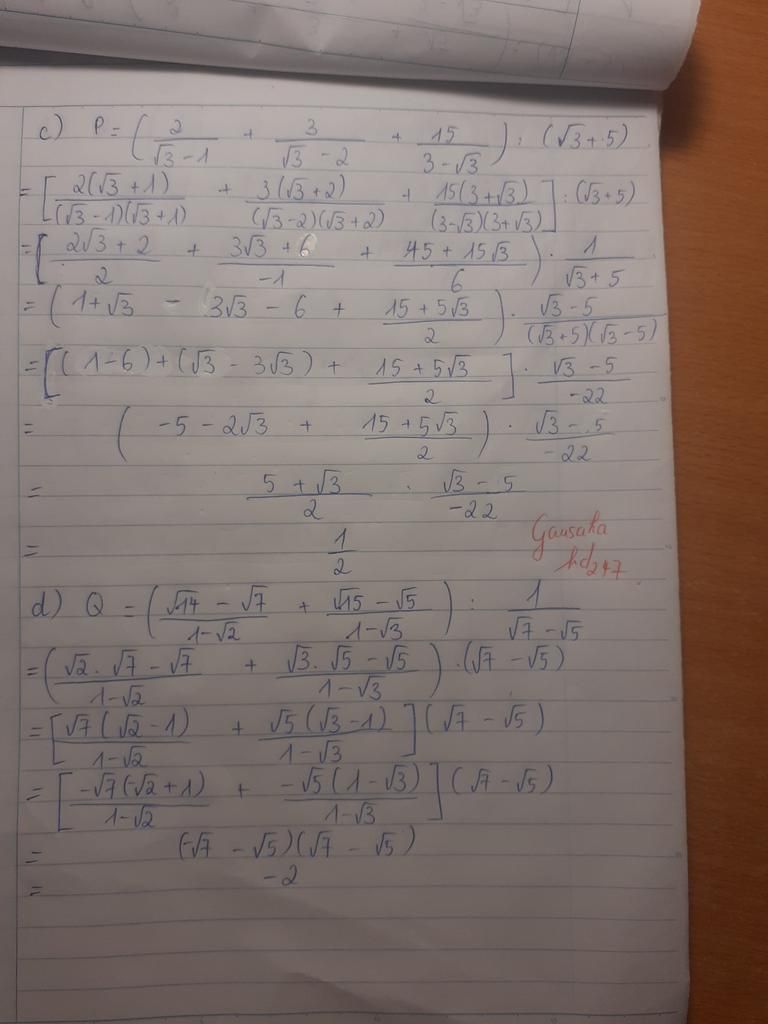 c) P = ( 2/(√3 - 1) + 3/(√3 - 2) + 15/(3 - √3) ) : (√3 + 5)
= [ 2(√3 + 1)/((√3 - 1)(√3 + 1)) + 3(√3 + 2)/((√3 - 2)(√3 + 2)) + 15(3 + √3)/((3 - √3)(3 + √3)) ] : (√3 + 5)
= [ (2√3 + 2)/2 + (3√3 + 6)/-1 + (45 + 15√3)/6 ) . 1/(√3 + 5)
= ( 1 + √3 - 3√3 - 6 + (15 + 5√3)/2 ) . (√3 - 5)/((√3 + 5)(√3 - 5))
= [ (1 - 6) + (√3 - 3√3) + (15 + 5√3)/2 ] . (√3 - 5)/-22
= ( -5 - 2√3 + (15 + 5√3)/2 ) . (√3 - 5)/-22
= (5 + √3)/2 . (√3 - 5)/-22
= 1/2
Gausaka
hd247
d) Q = ( (√14 - √7)/(1 - √2) + (√15 - √5)/(1 - √3) ) : 1/(√7 - √5)
= ( (√2 . √7 - √7)/(1 - √2) + (√3 . √5 - √5)/(1 - √3) ) . (√7 - √5)
= [ √7(√2 - 1)/(1 - √2) + √5(√3 - 1)/(1 - √3) ] (√7 - √5)
= [ -√7(-√2 + 1)/(1 - √2) + -√5(1 - √3)/(1 - √3) ] (√7 - √5)
= (-√7 - √5)(√7 - √5)
= -2